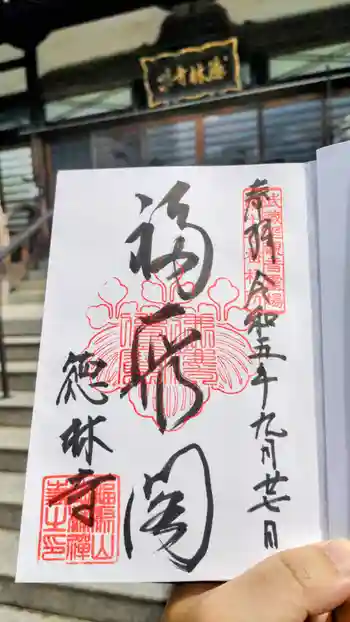 徳林寺
奉拝 令和五年九月廿七日
福聚閣
徳林寺